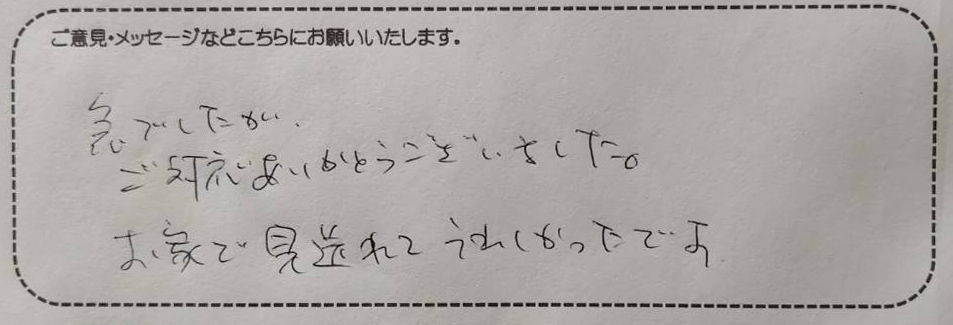 ご意見・メッセージなどこちらにお願いいたします。
急でしたが、
ご対応ありがとうございました。
お家で見送れてうれしかったです